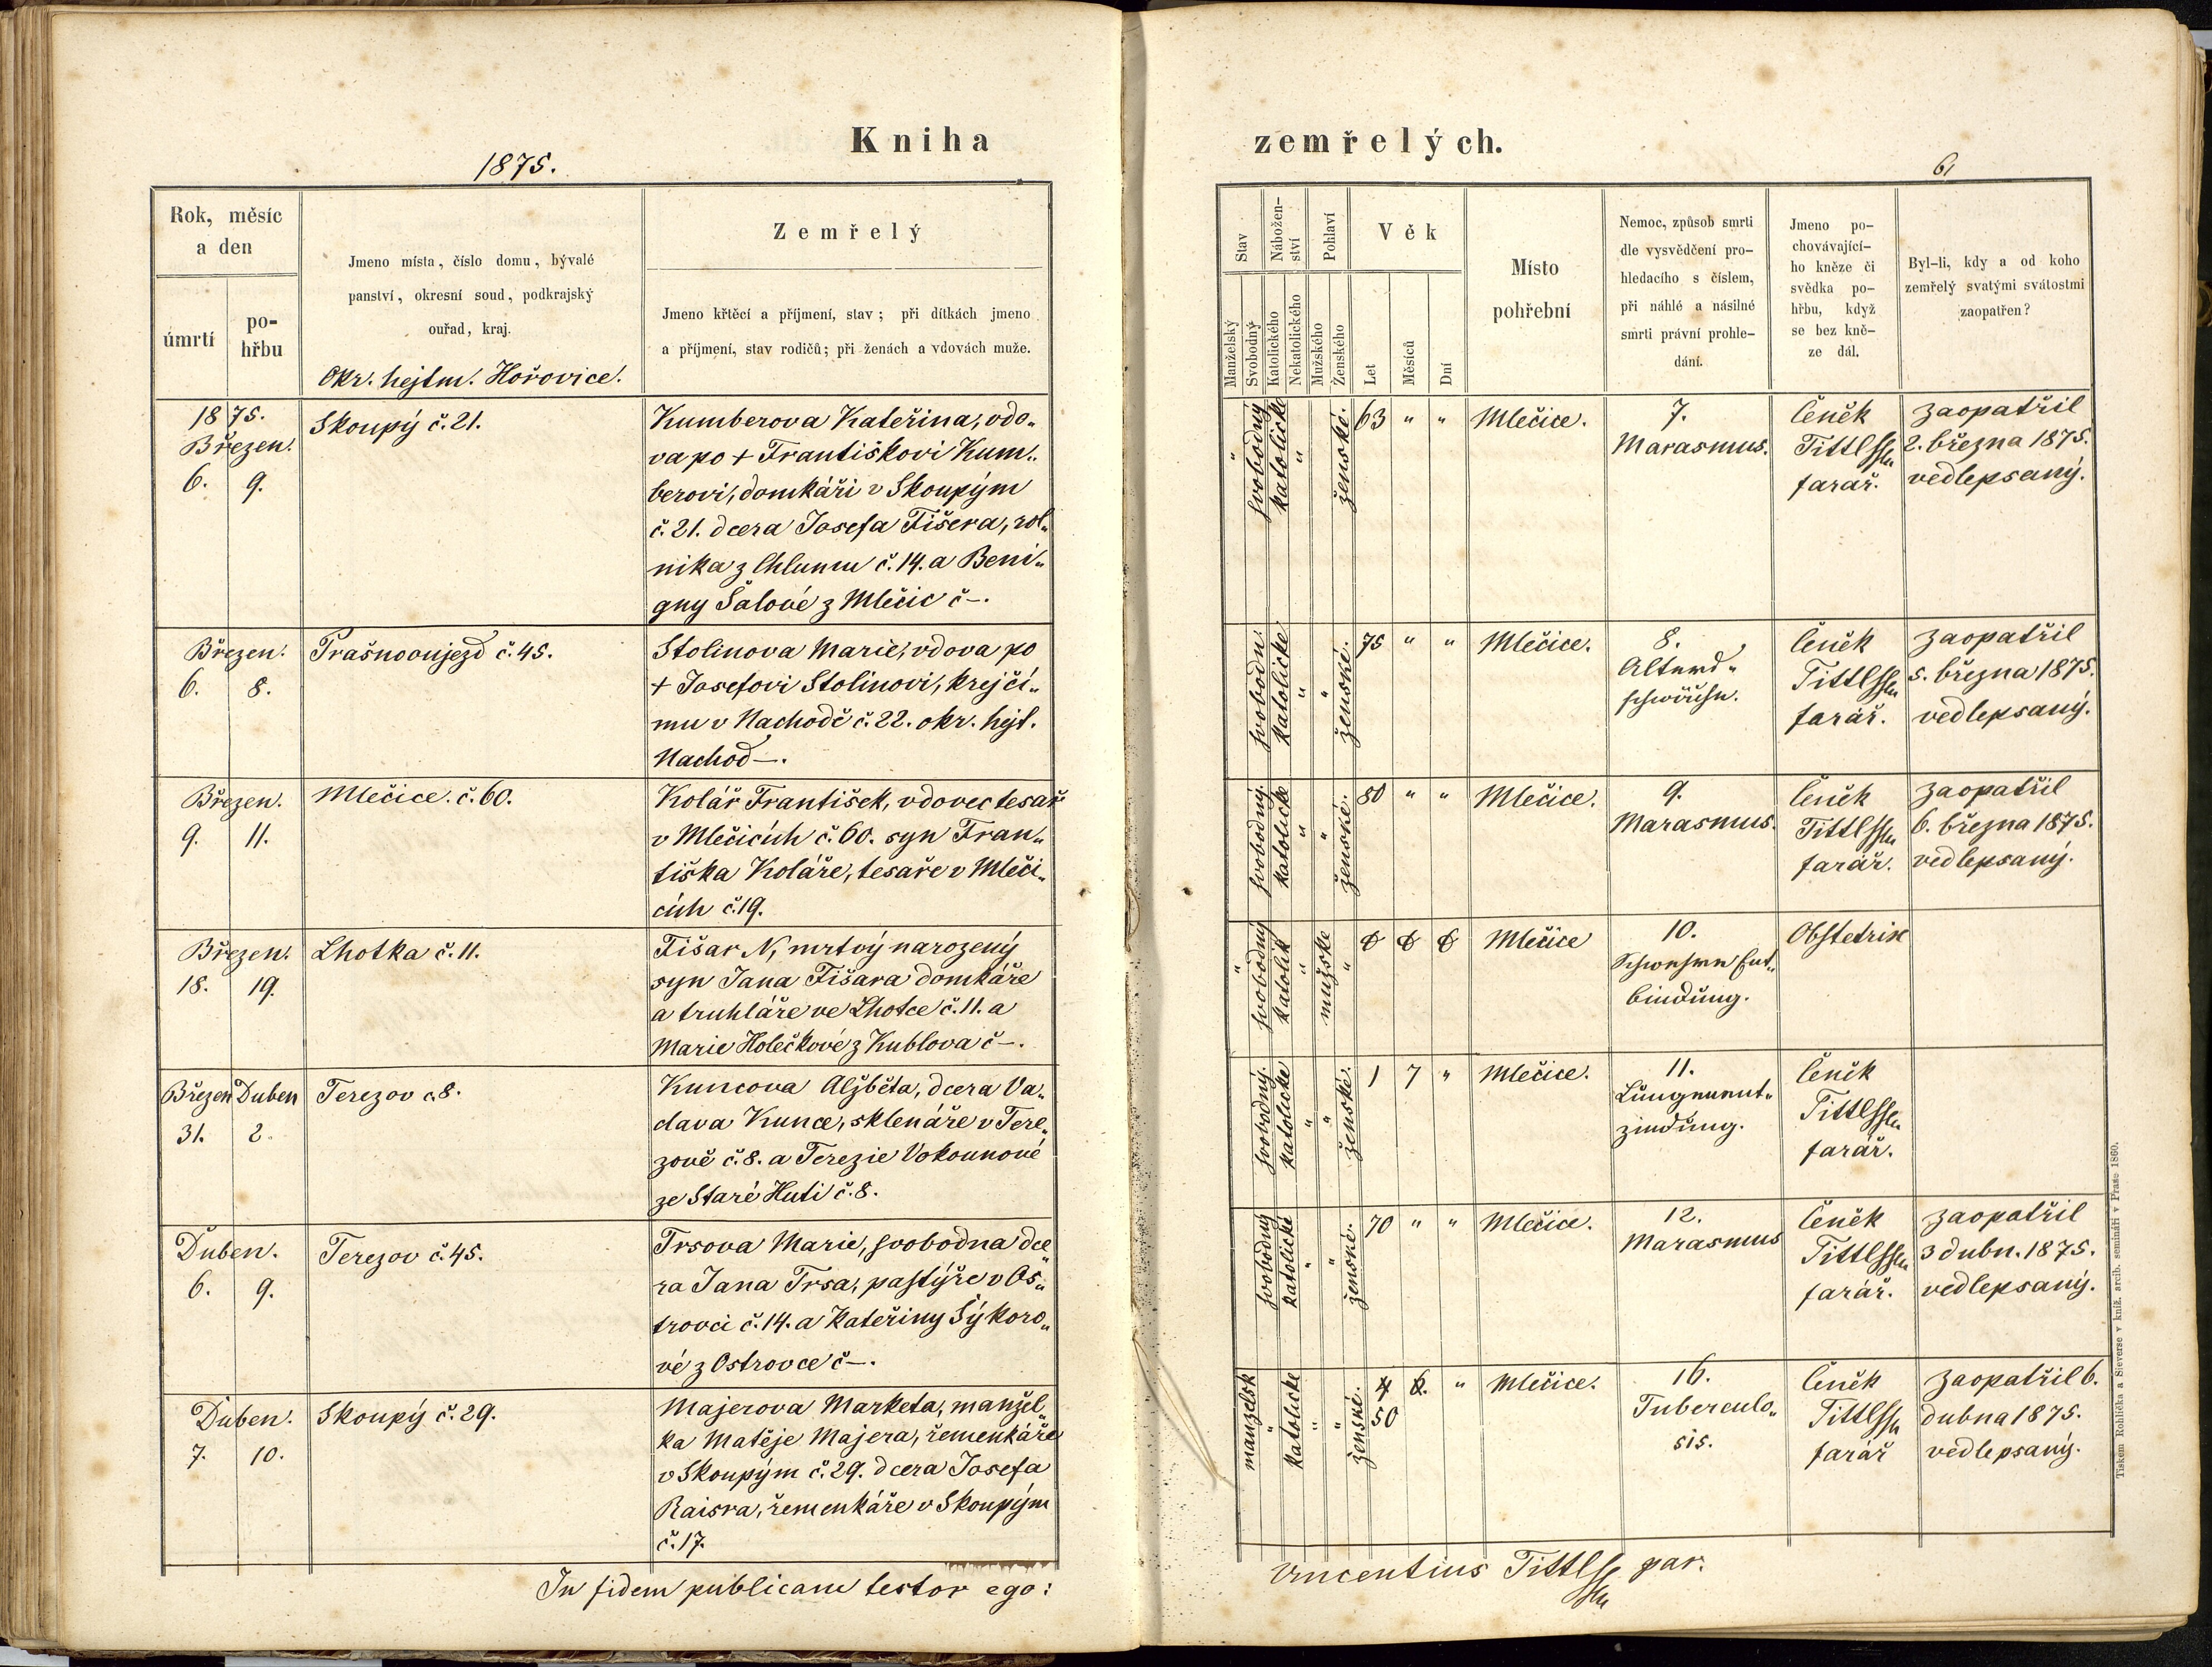 Kniha
1875.
Rok, měsíc
a den
úmrtí
po-
hřbu
Jmeno místa, číslo domu, bývalé
panství, okresní soud, podkrajský
ouřad, kraj.
Okr. hejtm. Hořovice.
Zemřelý
Jmeno křtěcí a příjmení, stav; při dítkách jmeno
a příjmení, stav rodičů; při ženách a vdovách muže.
1875.
Březen.
6. 9.
Skoupý č. 21.
Kumberova Kateřina, vdo„
va po + Františkovi Kum„
berovi, domkáři v Skoupým
č. 21. dcera Josefa Fišera, rol„
nika z Chlumu č. 14. a Beni„
gny Šalové z Mlečic č –.
Březen.
6. 8.
Prašnooujezd č. 45.
Stolinova Marie, vdova po
+ Josefovi Stolinovi, krejčí„
mu v Nachodě č. 22. okr. hejt.
Nachod –.
Březen.
9. 11.
Mlečice. č. 60.
Kolář František, vdovec tesař
v Mlečicích č. 60. syn Fran„
tiška Koláře, tesaře v Mleči„
cích č. 19.
Březen.
18. 19.
Lhotka č. 11.
Fišar N, mrtvý narozený
syn Jana Fišara domkáře
a truhláře ve Lhotce č. 11. a
Marie Holečkové z Kublova č –.
Březen Duben
31. 2.
Terezov č. 8.
Kuncova Alžběta, dcera Va„
clava Kunce, sklenáře v Tere„
zově č. 8. a Terezie Vokounové
ze Staré Huti č. 8.
Duben.
6. 9.
Terezov č. 45.
Trsova Marie, svobodna dce„
ra Jana Trsa, pastýře v Os„
trovci č. 14. a Kateřiny Sýkoro„
vé z Ostrovce č –.
Duben.
7. 10.
Skoupý č. 29.
Majerova Marketa, manžel„
ka Matěje Majera, řemenkáře
v Skoupým č. 29. dcera Josefa
Raisra, řemenkáře v Skoupým
č. 17.
In fidem publicam testor ego:
zemřelých.
61
Stav
Nábožen-
ství
Pohlaví
Věk
Manželský
Svobodný
Katolického
Nekatolického
Mužského
Ženského
Let
Měsíců
Dní
Místo
pohřební
Nemoc, způsob smrti
dle vysvědčení pro-
hledacího s číslem,
při náhlé a násilné
smrti právní prohle-
dání.
Jmeno po-
chovávající-
ho kněze či
svědka po-
hřbu, když
se bez kně-
ze dál.
Byl-li, kdy a od koho
zemřelý svatými svátostmi
zaopatřen?
" svobodný katolické " ženské. 63 " " Mlečice.
7.
Marasmus.
Čeněk
farář.
zaopatřil
2. března 1875.
vedlepsaný.
svobodn. katolické " " ženské. 75 " " Mlečice.
8.
Čeněk
farář.
zaopatřil
5. března 1875.
vedlepsaný.
svobodný. katolické " " ženské. 80 " " Mlečice.
9.
Marasmus.
Čeněk
farář.
zaopatřil
6. března 1875.
vedlepsaný.
" svobodný katolik " mužské " Mlečice
10.
Schwehre Ent„
bindung.
Obstetrix
svobodný. katolické " " ženské. 1 7 " Mlečice.
11.
Lungenent„
zindung.
Čeněk
farář.
svobodný katolické " " ženské. 70 " " Mlečice.
12.
Marasmus
Čeněk
farář.
zaopatřil
3 dubn. 1875.
vedlepsaný.
manželsk " katolické " " ženské. 4 6. " Mlečice.
50
16.
Tuberculo„
sis.
Čeněk
farář
zaopatřil 6.
dubna 1875.
vedlepsaný.
Vincentius par.
Tiskem Rohlíčka a Sieverse v kníž. arcib. semináři v Praze 1860.